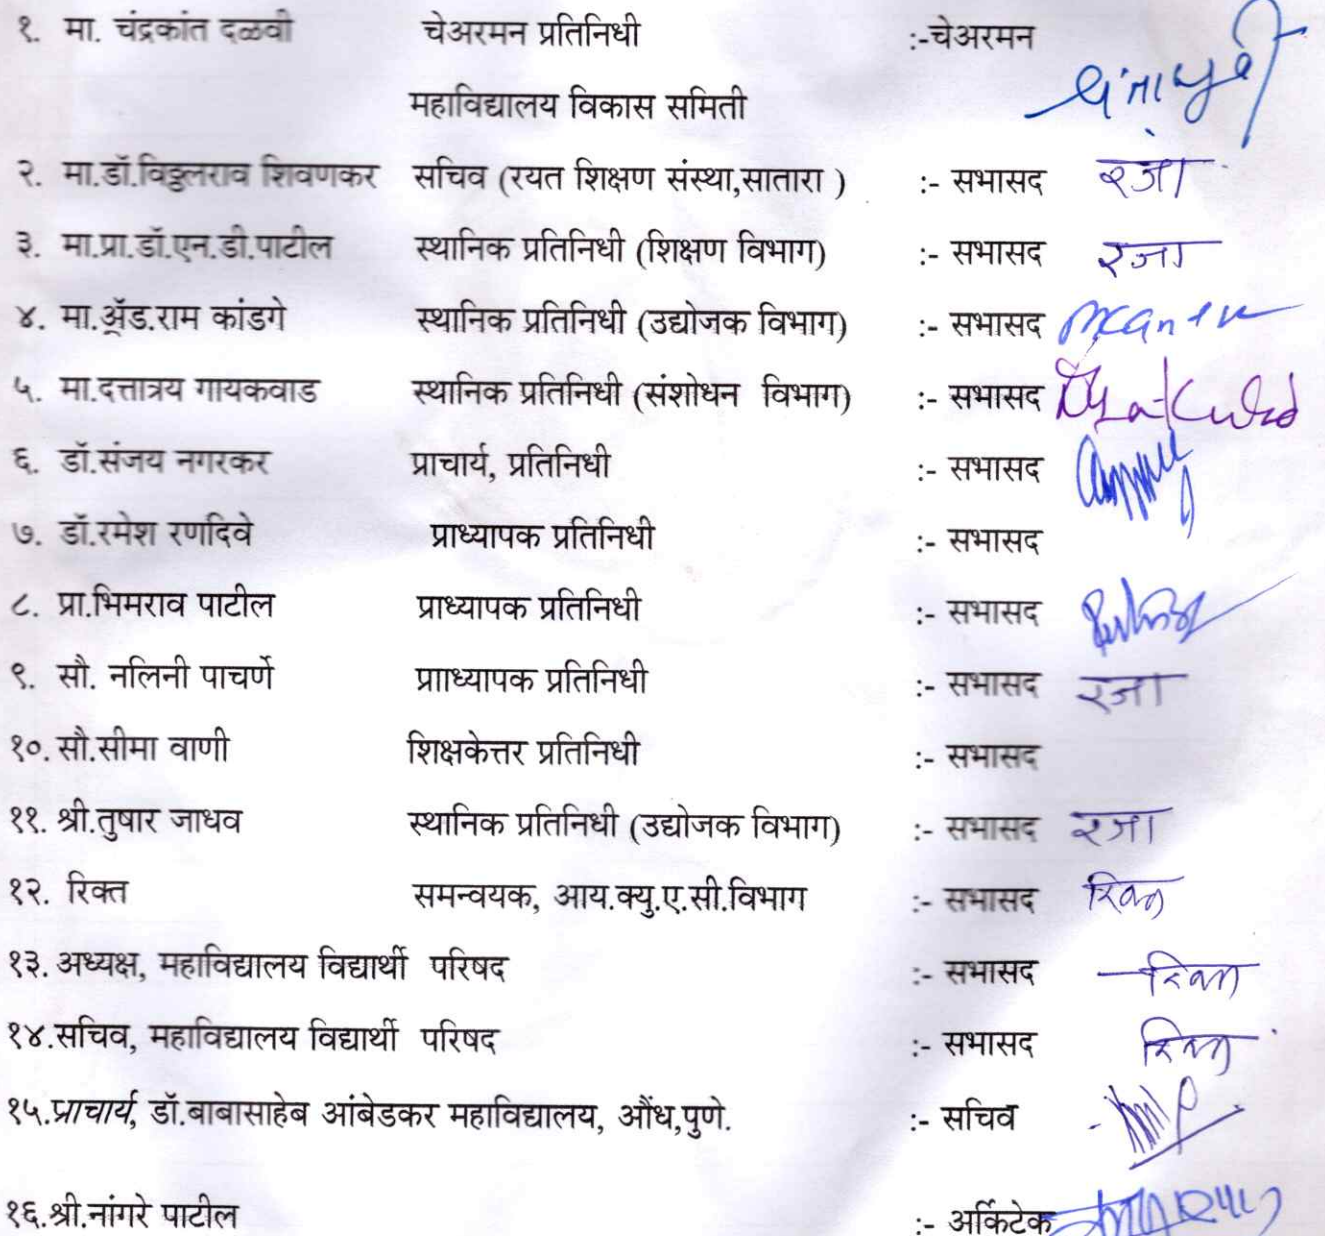 १. मा. चंद्रकांत दळवी चेअरमन प्रतिनिधी :-चेअरमन
महाविद्यालय विकास समिती
२. मा.डॉ.विठ्ठलराव शिवणकर सचिव (रयत शिक्षण संस्था,सातारा ) :- सभासद रजा
३. मा.प्रा.डॉ.एन.डी.पाटील स्थानिक प्रतिनिधी (शिक्षण विभाग) :- सभासद रजा
४. मा.ॲड.राम कांडगे स्थानिक प्रतिनिधी (उद्योजक विभाग) :- सभासद
५. मा.दत्तात्रय गायकवाड स्थानिक प्रतिनिधी (संशोधन विभाग) :- सभासद
६. डॉ.संजय नगरकर प्राचार्य, प्रतिनिधी :- सभासद
७. डॉ.रमेश रणदिवे प्राध्यापक प्रतिनिधी :- सभासद
८. प्रा.भिमराव पाटील प्राध्यापक प्रतिनिधी :- सभासद
९. सौ. नलिनी पाचर्णे प्रााध्यापक प्रतिनिधी :- सभासद रजा
१०. सौ.सीमा वाणी शिक्षकेत्तर प्रतिनिधी :- सभासद
११. श्री.तुषार जाधव स्थानिक प्रतिनिधी (उद्योजक विभाग) :- सभासद रजा
१२. रिक्त समन्वयक, आय.क्यु.ए.सी.विभाग :- सभासद रिक्त
१३. अध्यक्ष, महाविद्यालय विद्यार्थी परिषद :- सभासद रिक्त
१४.सचिव, महाविद्यालय विद्यार्थी परिषद :- सभासद रिक्त
१५.प्राचार्य, डॉ.बाबासाहेब आंबेडकर महाविद्यालय, औंध,पुणे. :- सचिव
१६.श्री.नांगरे पाटील :- अर्किटेक